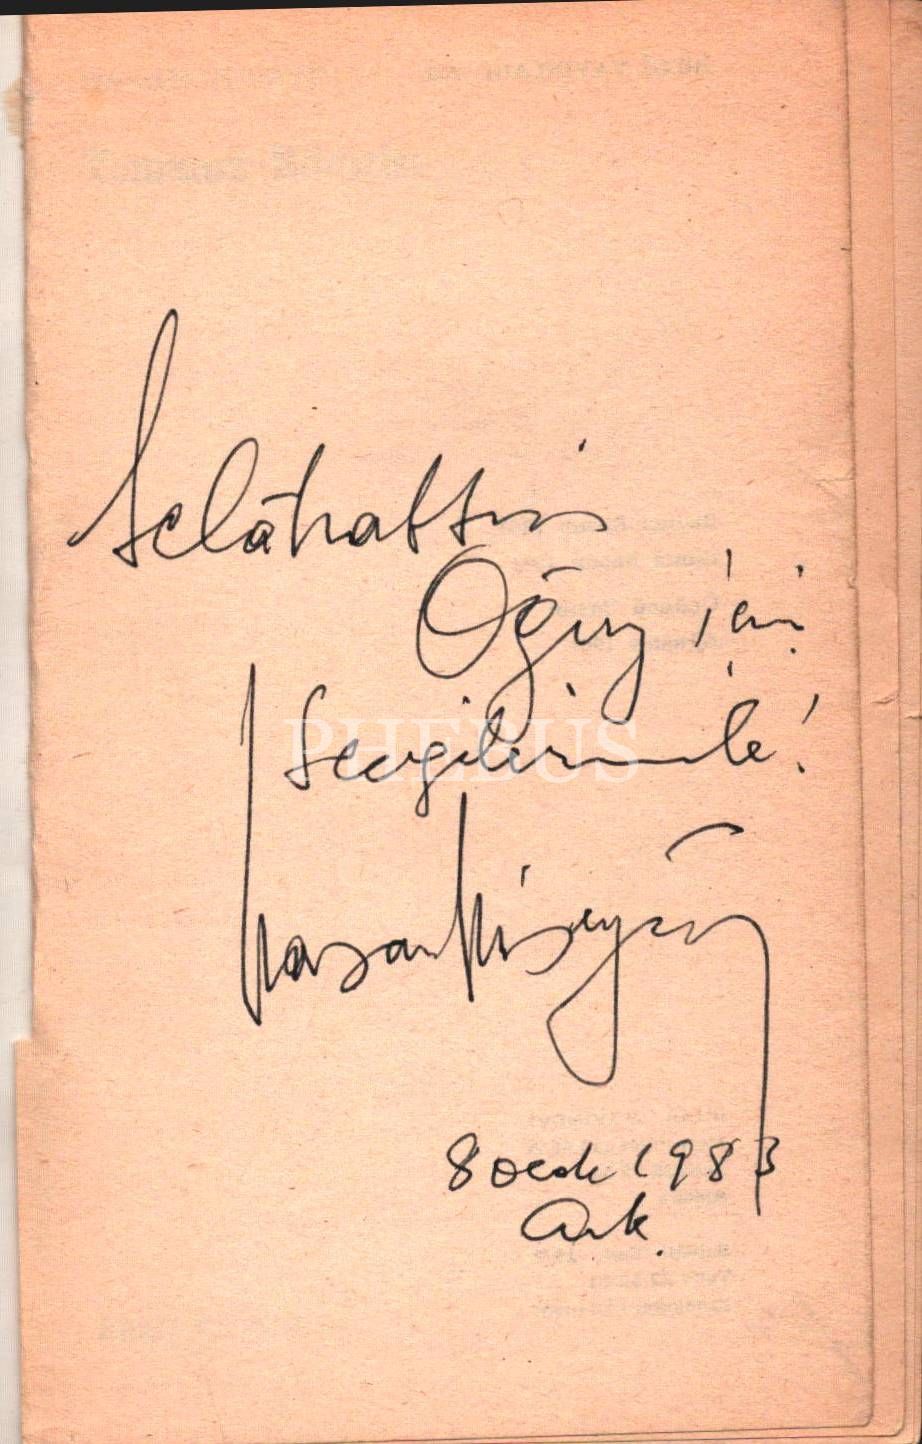 Selâhattin
Oğuz için
Sevgilerimle!
PHEBUS
Hasan Hüseyin
8 ocak 1983
Ank.